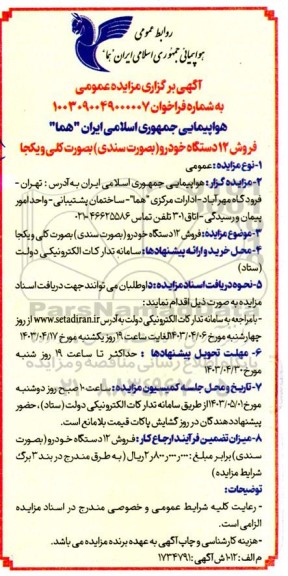 روابط عمومی
هواپیمائی جمهوری اسلامی ایران "هما"
آگهی برگزاری مزایده عمومی
به شماره فراخوان ۱۰۰۳۰۹۰۰۴۹۰۰۰۰۰۷
هواپیمایی جمهوری اسلامی ایران "هما"
فروش ۱۲ دستگاه خودرو (بصورت سندی) بصورت کلی و یکجا
۱-نوع مزایده: عمومی
۲-مزایده گزار: هواپیمایی جمهوری اسلامی ایران به آدرس : تهران -
فرودگاه مهرآباد - ادارات مرکزی "هما" - ساختمان پشتیبانی - واحد امور
پیمان و رسیدگی - اتاق ۳۰۱ تلفن تماس ۴۶۶۲۵۵۸۶-۰۲۱
۳- موضوع مزایده: فروش ۱۲ دستگاه خودرو (بصورت سندی) بصورت کلی و یکجا
۴- محل خرید و ارائه پیشنهادها: سامانه تدارکات الکترونیکی دولت
(ستاد)
۵- نحوه دریافت اسناد مزایده: داوطلبان می توانند جهت دریافت اسناد
مزایده به صورت ذیل اقدام نمایند:
- با مراجعه به سامانه تدارکات الکترونیکی دولت به آدرس www.setadiran.ir از روز
چهارشنبه مورخ ۱۴۰۳/۰۴/۰۶ لغایت ساعت ۱۹ روز یکشنبه مورخ ۱۴۰۳/۰۴/۱۷
۶- مهلت تحویل پیشنهادها : حداکثر تا ساعت ۱۹ روز شنبه
مورخ ۱۴۰۳/۰۴/۳۰
۷- تاریخ و محل جلسه کمیسیون مزایده: ساعت ۱۰ صبح روز دوشنبه
مورخ ۱۴۰۳/۰۵/۰۱ از طریق سامانه تدارکات الکترونیکی دولت (ستاد)، حضور
پیشنهاد دهندگان در روز گشایش پاکات قیمت بلامانع است.
۸- میزان تضمین فرآیند ارجاع کار: فروش ۱۲ دستگاه خودرو (بصورت
سندی) برابر مبلغ: ریال (به طرق مندرج در بند ۳ برگ
شرایط مزایده)
توضیحات:
- رعایت کلیه شرایط عمومی و خصوصی مندرج در اسناد مزایده
الزامی است.
- هزینه کارشناسی و چاپ آگهی به عهده برنده مزایده می باشد.
م الف: ۱۰۱۲ ش آگهی: ۱۷۳۴۷۹۱